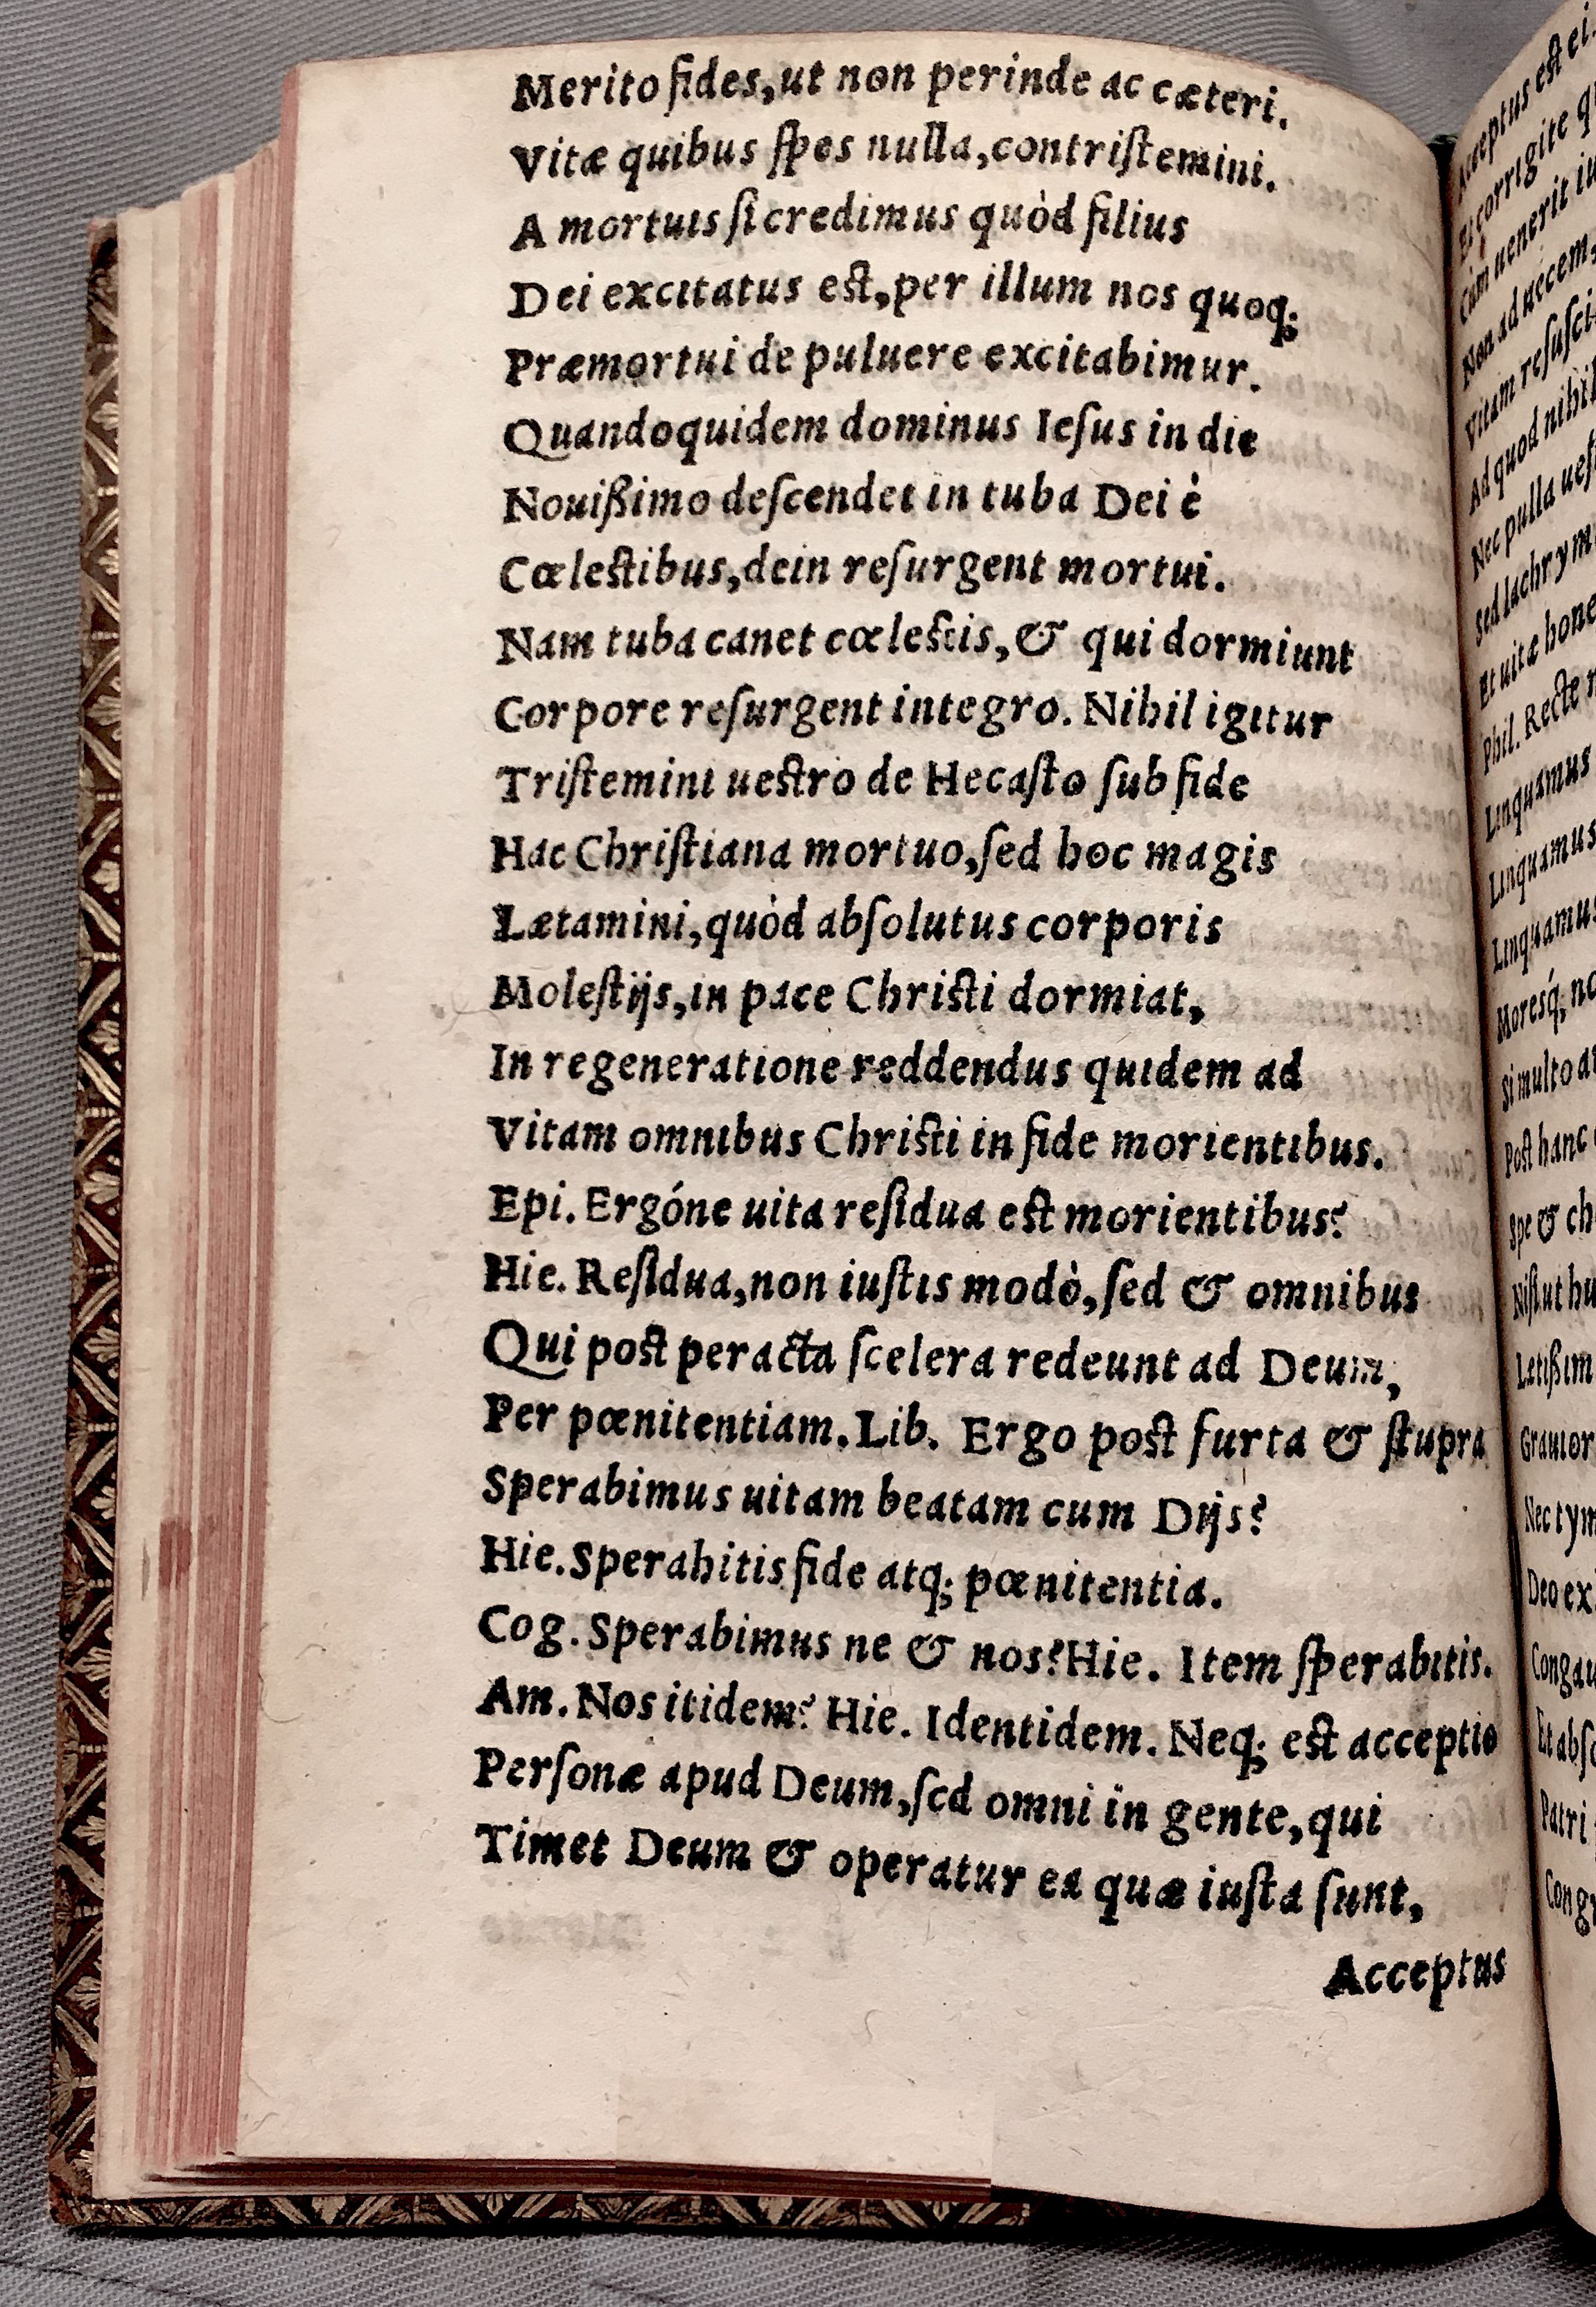 Merito fides, ut non perinde ac cæteri.
Vitæ quibus ſpes nulla, contriſtemini.
A mortuis ſi credimus quòd filius
Dei excitatus eſt, per illum nos quoq;
Præmortui de puluere excitabimur.
Quandoquidem dominus Ieſus in die
Nouißimo deſcendet in tuba Dei è
Cœleſtibus, dein reſurgent mortui.
Nam tuba canet cœleſtis, & qui dormiunt
Corpore reſurgent integro. Nihil igitur
Triſtemini ueſtro de Hecaſto ſub fide
Hac Chriſtiana mortuo, ſed hoc magis
Lætamini, quòd abſolutus corporis
Moleſtijs, in pace Chriſti dormiat,
In regeneratione reddendus quidem ad
Vitam omnibus Chriſti in fide morientibus.
Epi. Ergóne uita reſidua eſt morientibus?
Hie. Reſidua, non iuſtis modò, ſed & omnibus
Qui poſt peracta ſcelera redeunt ad Deum,
Per pœnitentiam. Lib. Ergo poſt furta & ſtupra
Sperabimus uitam beatam cum Dijs?
Hie. Sperabitis fide atq; pœnitentia.
Cog. Sperabimus ne & nos? Hie. Item ſperabitis.
Am. Nos itidem? Hie. Identidem. Neq; eſt acceptio
Perſonæ apud Deum, ſed omni in gente, qui
Timet Deum & operatur ea quæ iuſta ſunt,
Acceptus
Acceptus eſt ei
Et corrigite
Cùm uenerit
Non ad necem,
Vitam
Ad quod
Nec pulla
Sed
Et uitæ
Phil. Recte
Linquamus
Linquamus
Linquamus
Moresq́;
Si multo
Poſt hanc
Spe &
Niſi ut
Nec
Deo
Patri